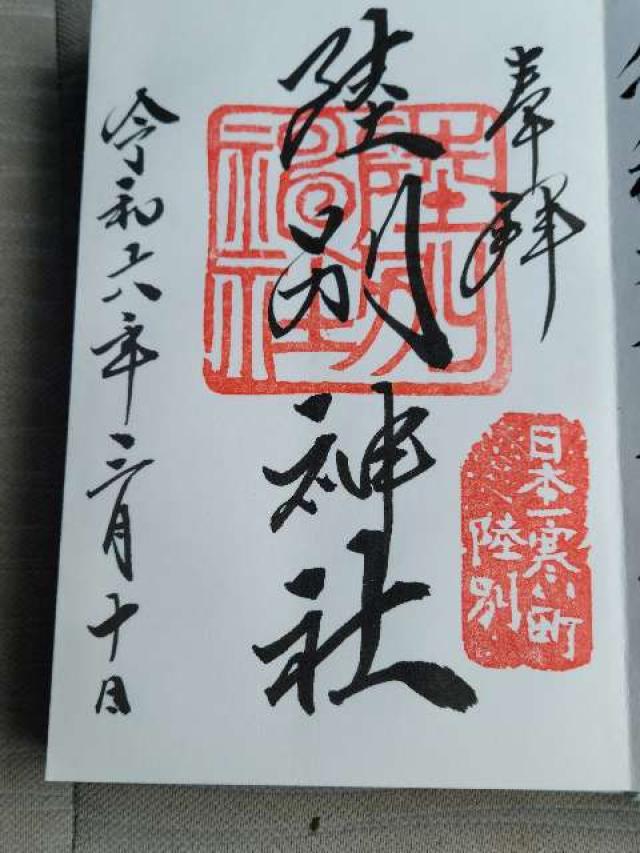 奉拝
陸別神社
陸別神社
日本一寒い町
陸別
令和六年三月十日